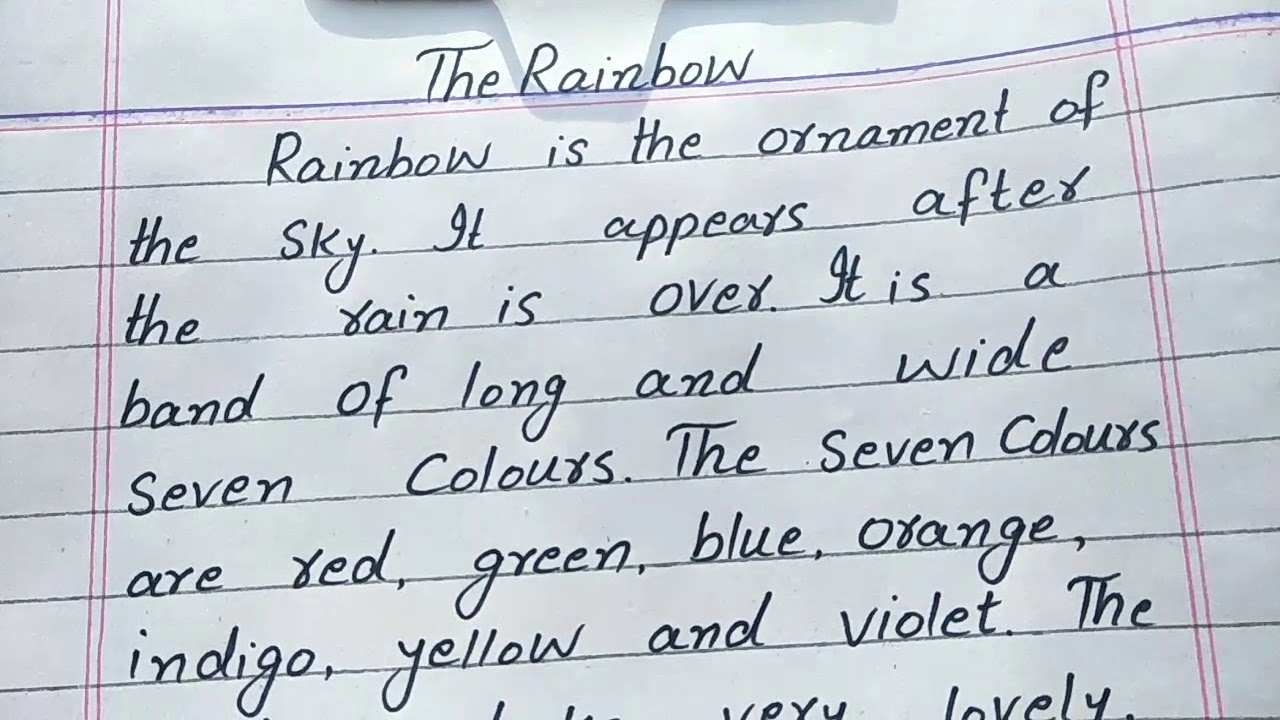 The Rainbow
Rainbow is the ornament of
the Sky. It appears after
the rain is over. It is a
band of long and wide
Seven Colours. The Seven Colours
are red, green, blue, orange,
indigo, yellow and violet. The
very lovely.